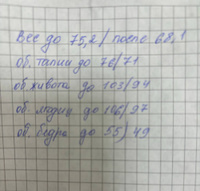 Вес до 75,2/ после 68,1
об. талии до 76/71
об живота до 103/94
об. ягодиц до 106/97
об. бедра до 55/49